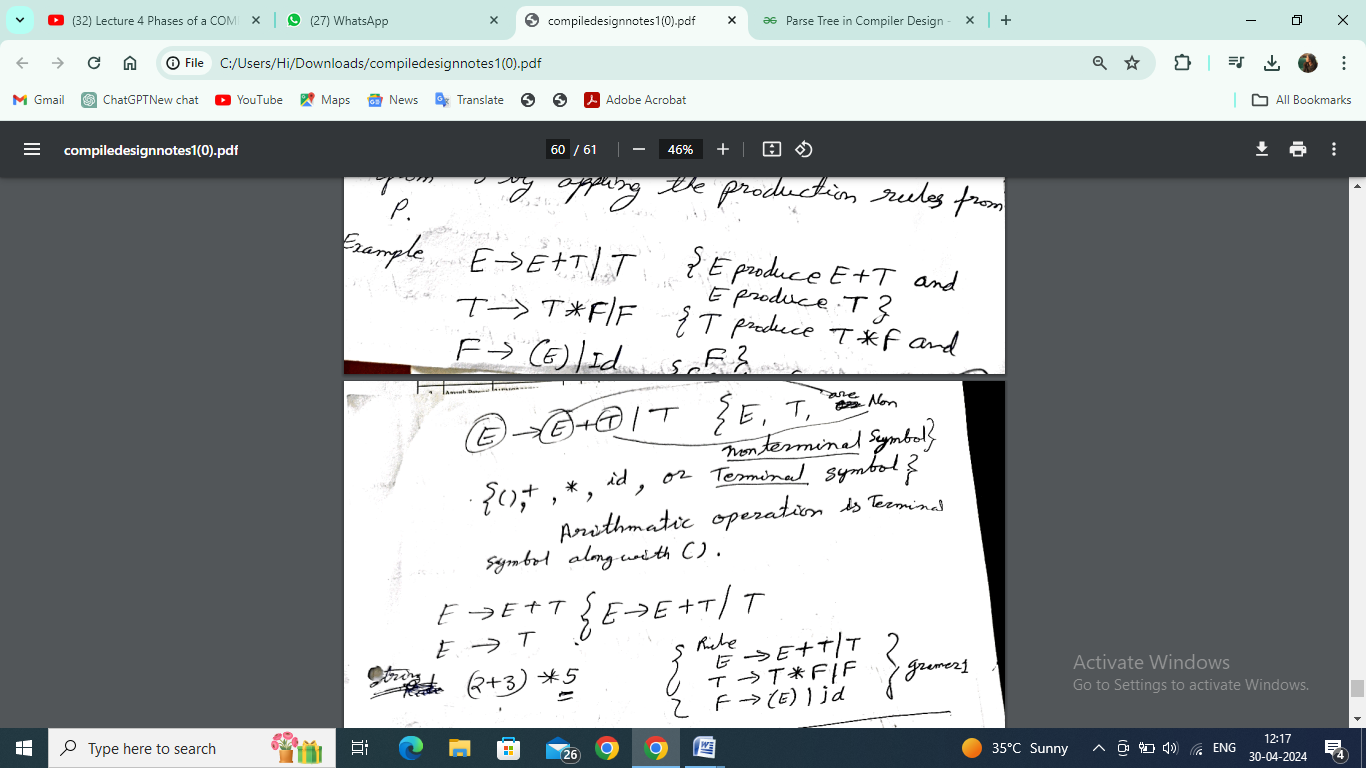 (32) Lecture 4 Phases of a COM
(27) WhatsApp
compiledesignnotes1(0).pdf
Parse Tree in Compiler Design -
File C:/Users/Hi/Downloads/compiledesignnotes1(0).pdf
Gmail ChatGPTNew chat YouTube Maps News Translate Adobe Acrobat All Bookmarks
compiledesignnotes1(0).pdf 60 / 61 46%
by appling the production rules from
P.
Example E → E+T | T { E produce E+T and
E produce T }
T → T*F/F { T produce T*F and
F → (E) | Id F }
E → E + T | T { E, T, are Non
nonterminal symbol}
{(),+, *, id, or Terminal symbol}
Arithmatic operation is Terminal
symbol along with ( ).
E → E + T { E → E + T / T
E → T
Rule
E → E + T | T
String (2+3) * 5 T → T * F | F } gramer1
F → (E) | id
Activate Windows
Go to Settings to activate Windows.
Type here to search
26
35°C Sunny
ENG
12:17
30-04-2024
4